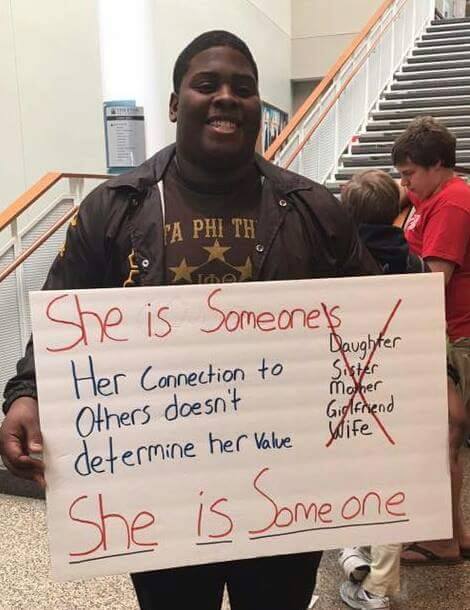 TA PHI TH
ΙΦΘ
She is Someone's
Daughter
Sister
Mother
Girlfriend
Wife
Her Connection to
Others doesn't
determine her Value
She is Someone